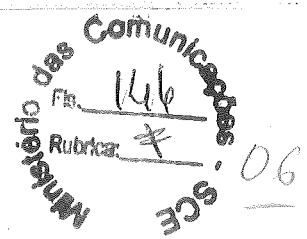 Ministério das Comunicações - SCE
Fls. 146
Rubrica:
06